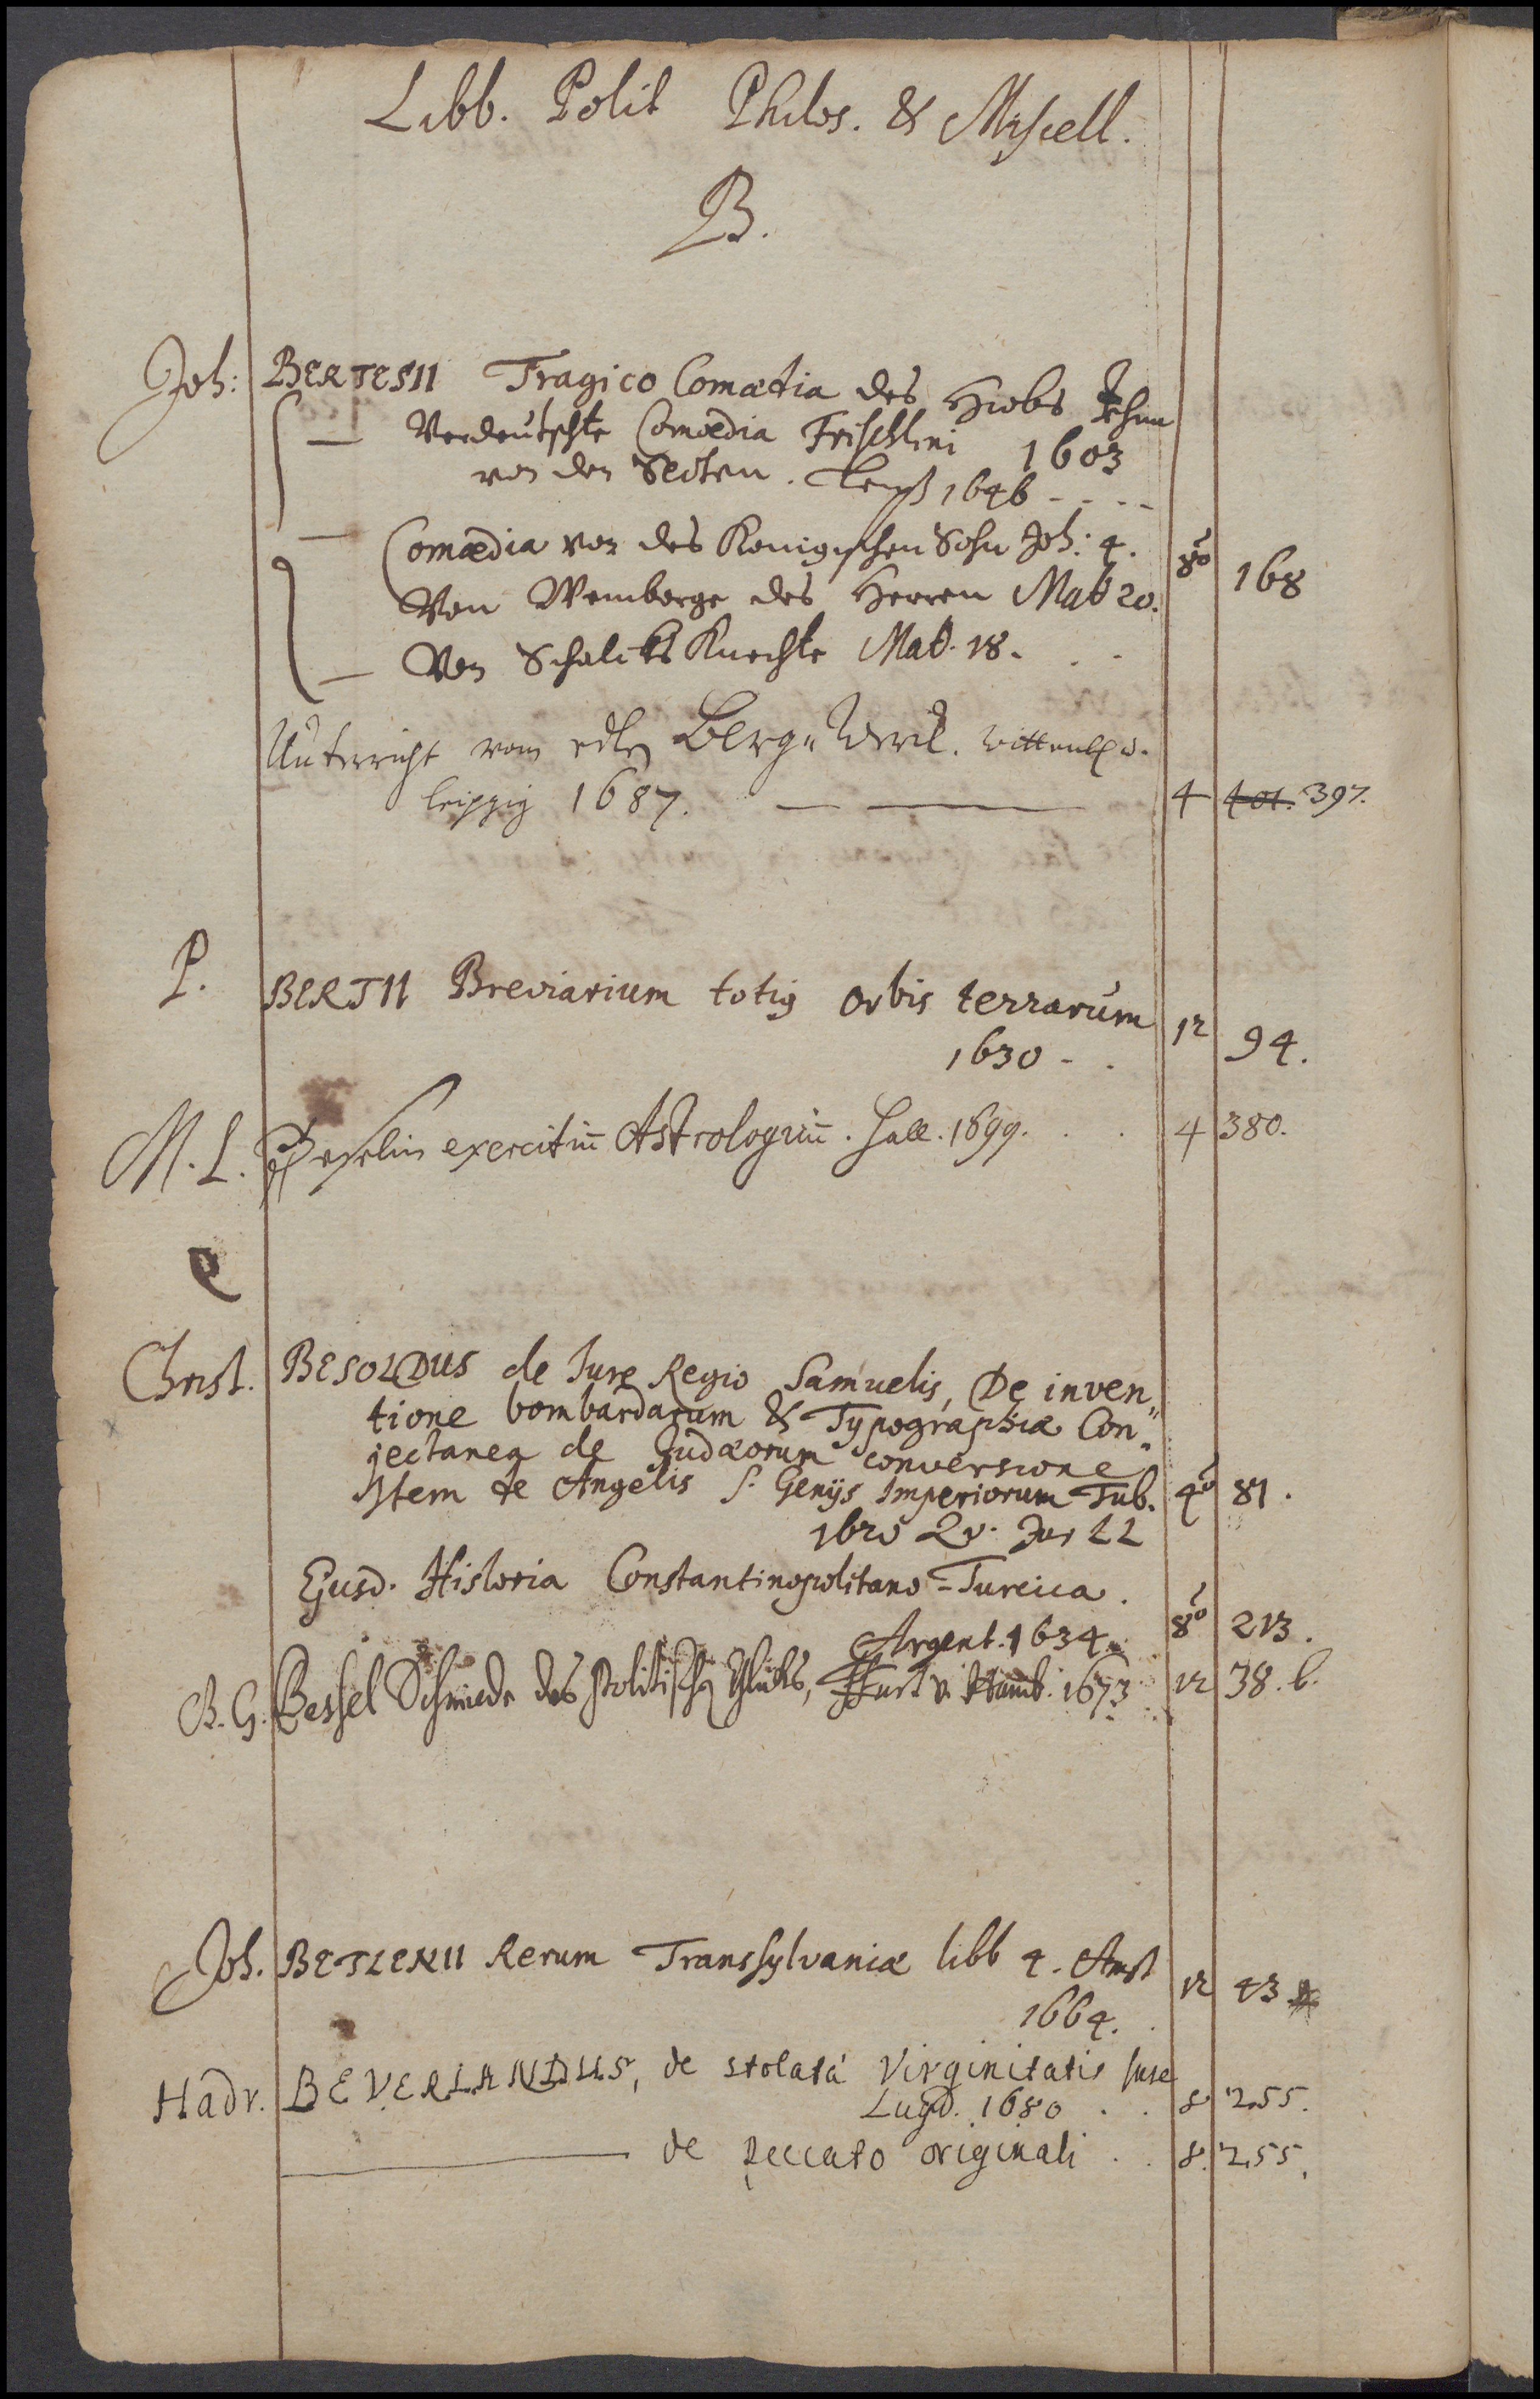 Libb. Polit Philos. & Miscell.
B.
Joh: BERTESII Tragico Comœdia des Hiobs
— Verdeutschte Comœdia Frischlini 1603
von den Secten. 1646 - - - -
— Comœdia von des Königischen Sohn Joh: 4. 8o 168
Von Weinberge des Herren Mat 20.
— Von Schalcks Knechte Mat. 18. . -
Unterricht vom edlen Berg-Werck. Wittenb. u.
Leipzig 1687. — — 4 401. 397.
P. BERTII Breviarium totius orbis terrarum 12 94.
1630 - .
M. L. Beselin exercitiu Astrologicu. Hall. 1699. . . 4 380.
Christ. BESOLDUS de Jure Regio Samuelis, De inven„
tione bombardarum & Typographiæ Con„
jectanea de Judæorum conversione
Item de Angelis s. Genijs Imperiorum Tub. 4o 81.
1620
Ejusd. Historia Constantinopolitano-Turcica.
Argent. 1634. 8o 213.
B. G. Bessel Schmiede des politischen Glücks, Hamb. 1673 12 38. b.
Joh. BETLENII Rerum Transsylvaniæ libb 4. Amst 12 43
1664. .
Hadr. BEVERLANDUS, de stolatá Virginitatis jure
Lugd. 1680 . . 8 255.
— de peccato originali . . 8. 255.